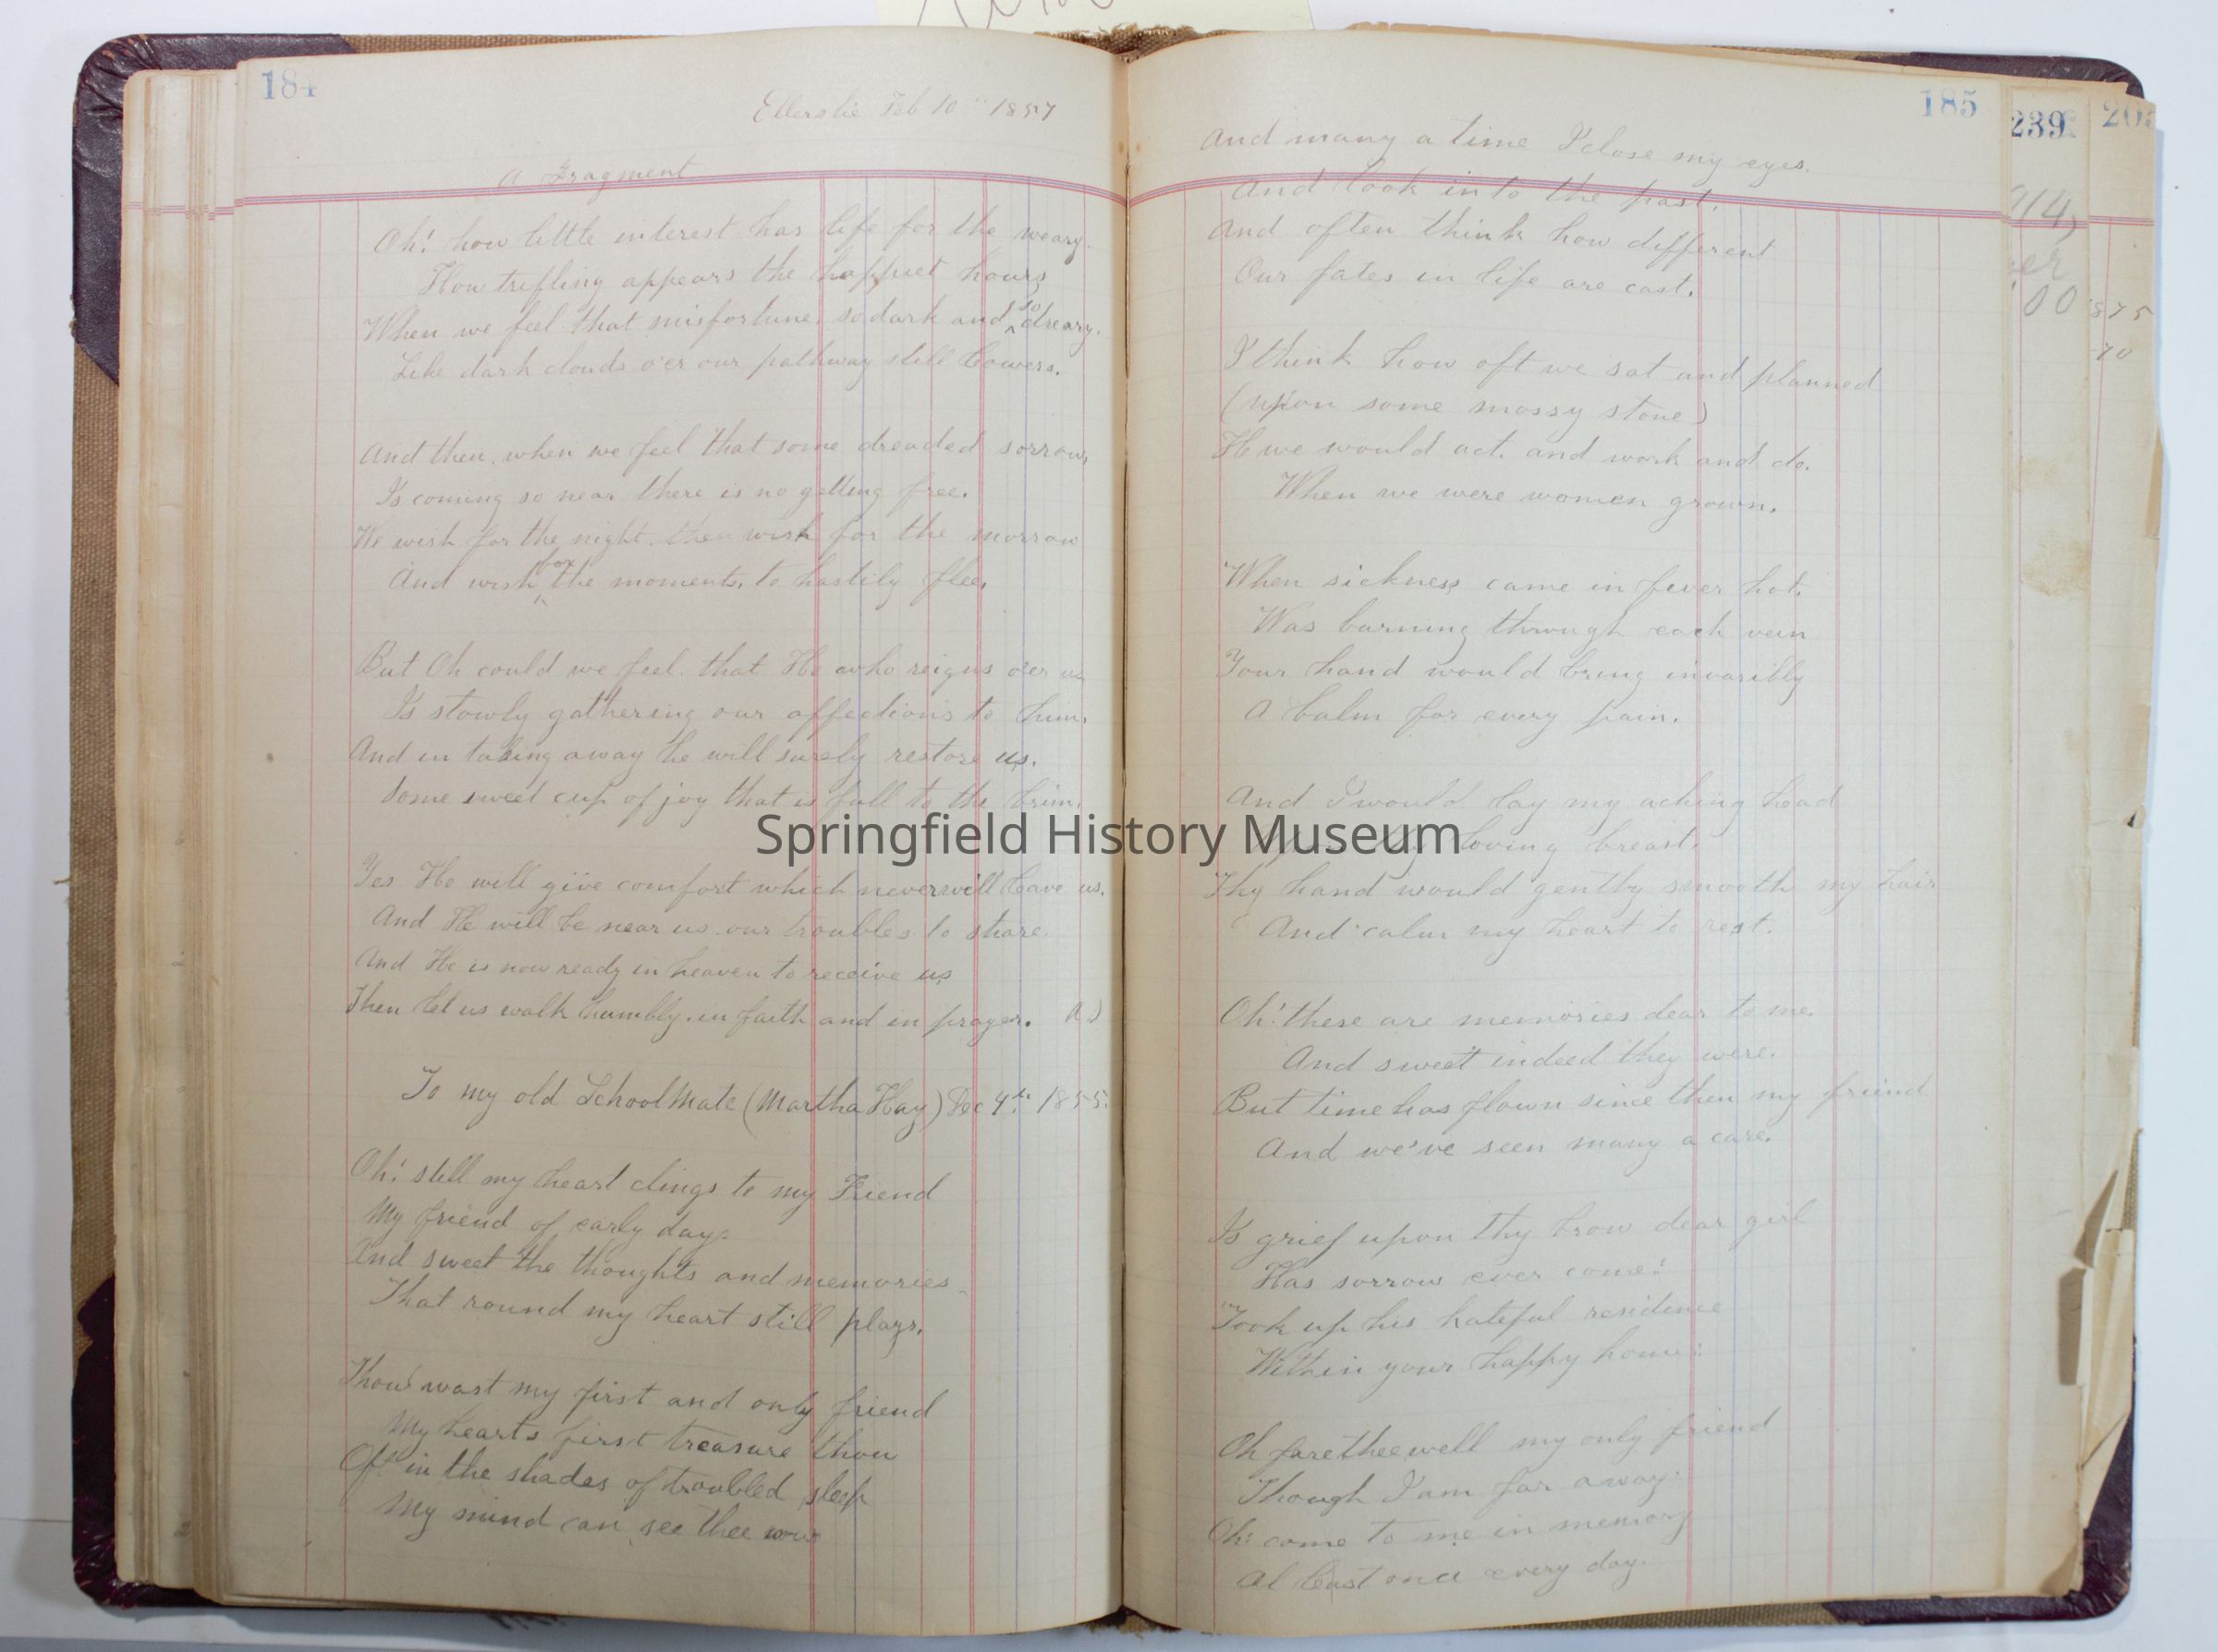 184
Ellerslie Feb 10th 1857
A Fragment
Oh! how little interest has life for the weary.
How trifling appears the happiet hours
When we feel that misfortune, so dark and so dreary.
Like dark clouds o'er our pathway still lowers.
And then, when we feel that some dreaded sorrow
Is coming so near there is no getting free.
We wish for the night, then wish for the morrow
And wish for the moments, to hastily flee.
But Oh could we feel that He who reigns o'er us
Is slowly gathering our affections to him.
And in taking away he will surely restore us.
Some sweet cup of joy that is full to the brim.
Yes He will give comfort which never will leave us.
And He will be near us our troubles to share.
And He is now ready in heaven to receive us
Then let us walk humbly, in faith and in prayer.
To my old SchoolMate (Martha Hay) Dec 4th 1855.
Oh! still my heart clings to my Friend
My friend of early day.
And sweet the thoughts and memories
That round my heart still plays.
Thou wast my first and only friend
My hearts first treasure thou
Oft in the shades of troubled sleep
My mind can see thee now
185
And many a time I close my eyes.
And look into the past.
And often think how different
Our fates in life are cast.
I think how oft we sat and planned
(upon some mossy stone)
He we would act, and work and do.
When we were women grown.
When sickness came in fever hot,
Was burning through each vein
Your hand would bring invaribly
A balm for every pain.
And I would lay my aching head
loving breast.
Thy hand would gently smooth my hair
And calm my heart to rest.
Oh! these are memories dear to me.
And sweet indeed they were.
But time has flown since then my friend
And we've seen many a care.
Is grief upon thy brow dear girl
Has sorrow ever come!
Took up his hateful residence
Within your happy home!
Oh fare thee well my only friend
Though I am far away.
Oh! come to me in memory
At least once every day.
239
875
70
Springfield History Museum